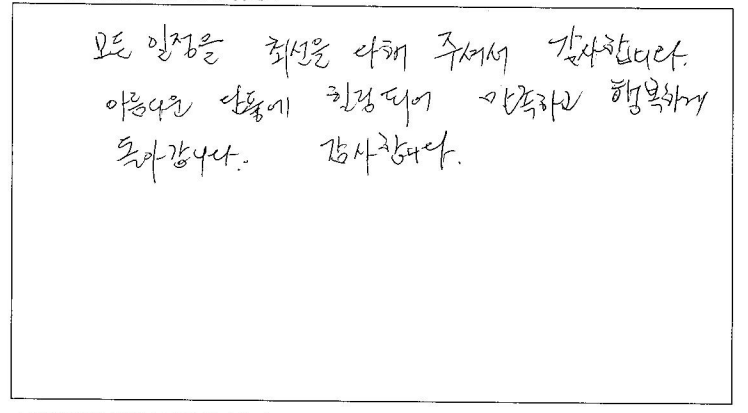 모든 일정을 최선을 다해 주셔서 감사합니다.
아름다운 단풍에 힐링되어 만족하고 행복하게
돌아갑니다. 감사합니다.